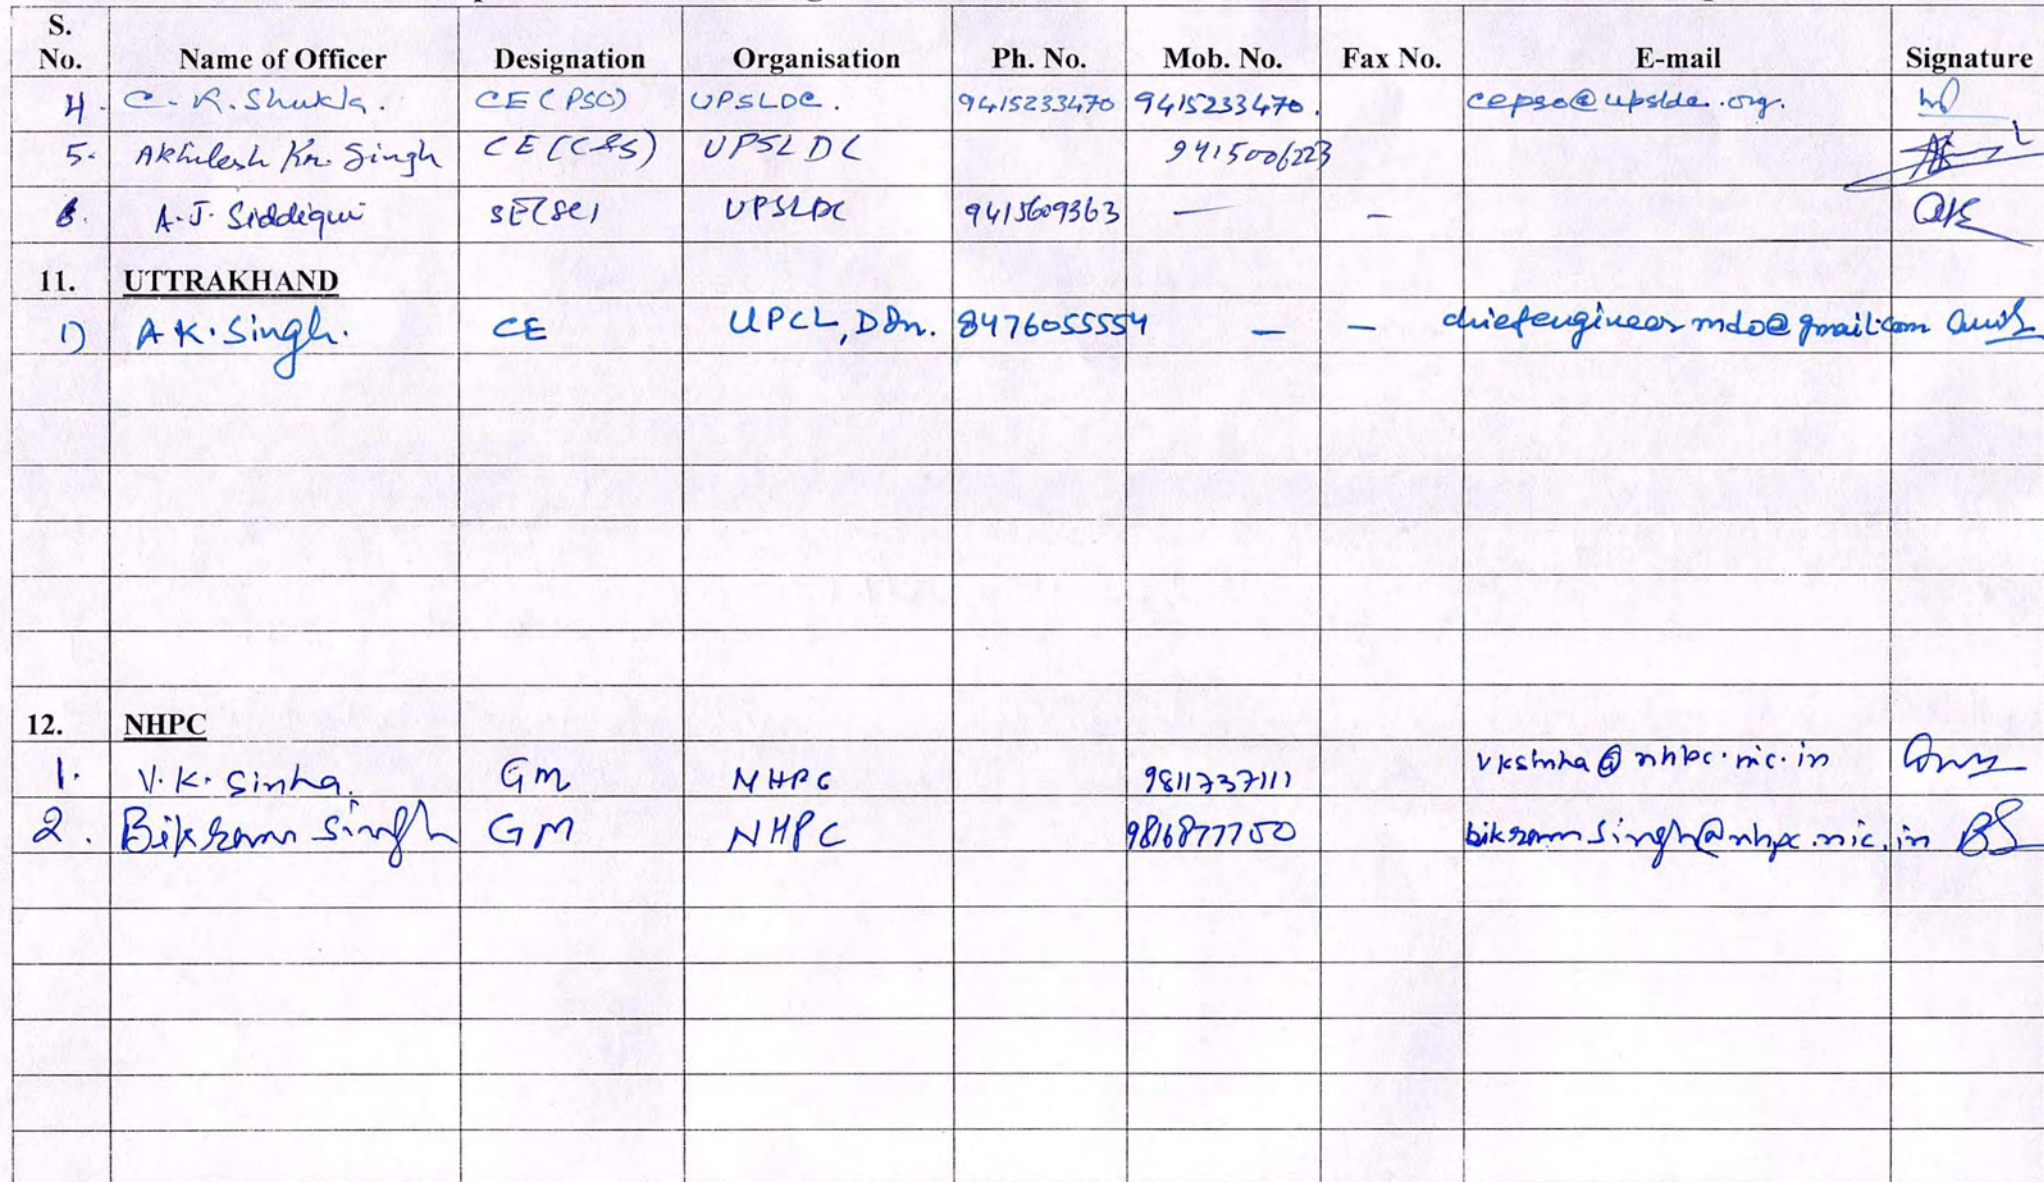 S. No. Name of Officer Designation Organisation Ph. No. Mob. No. Fax No. E-mail Signature
4. C. R. Shukla. CE (PSO) UPSLDC. 9415233470 9415233470. cepso@upsldc.org.
5. Akhilesh Kr. Singh CE (C&S) UPSLDC 9415006223
6. A.J. Siddiqui SE(SC) UPSLDC 9415609363 — –
11. UTTRAKHAND
1) A K. Singh. CE UPCL, DDn. 8476055554 – – chiefengineermdo@gmail.com
12. NHPC
1. V.K. Sinha. GM NHPC 9811737111 vksinha@nhpc.nic.in
2. Bikram Singh GM NHPC 9816877750 bikramsingh@nhpc.nic.in BS